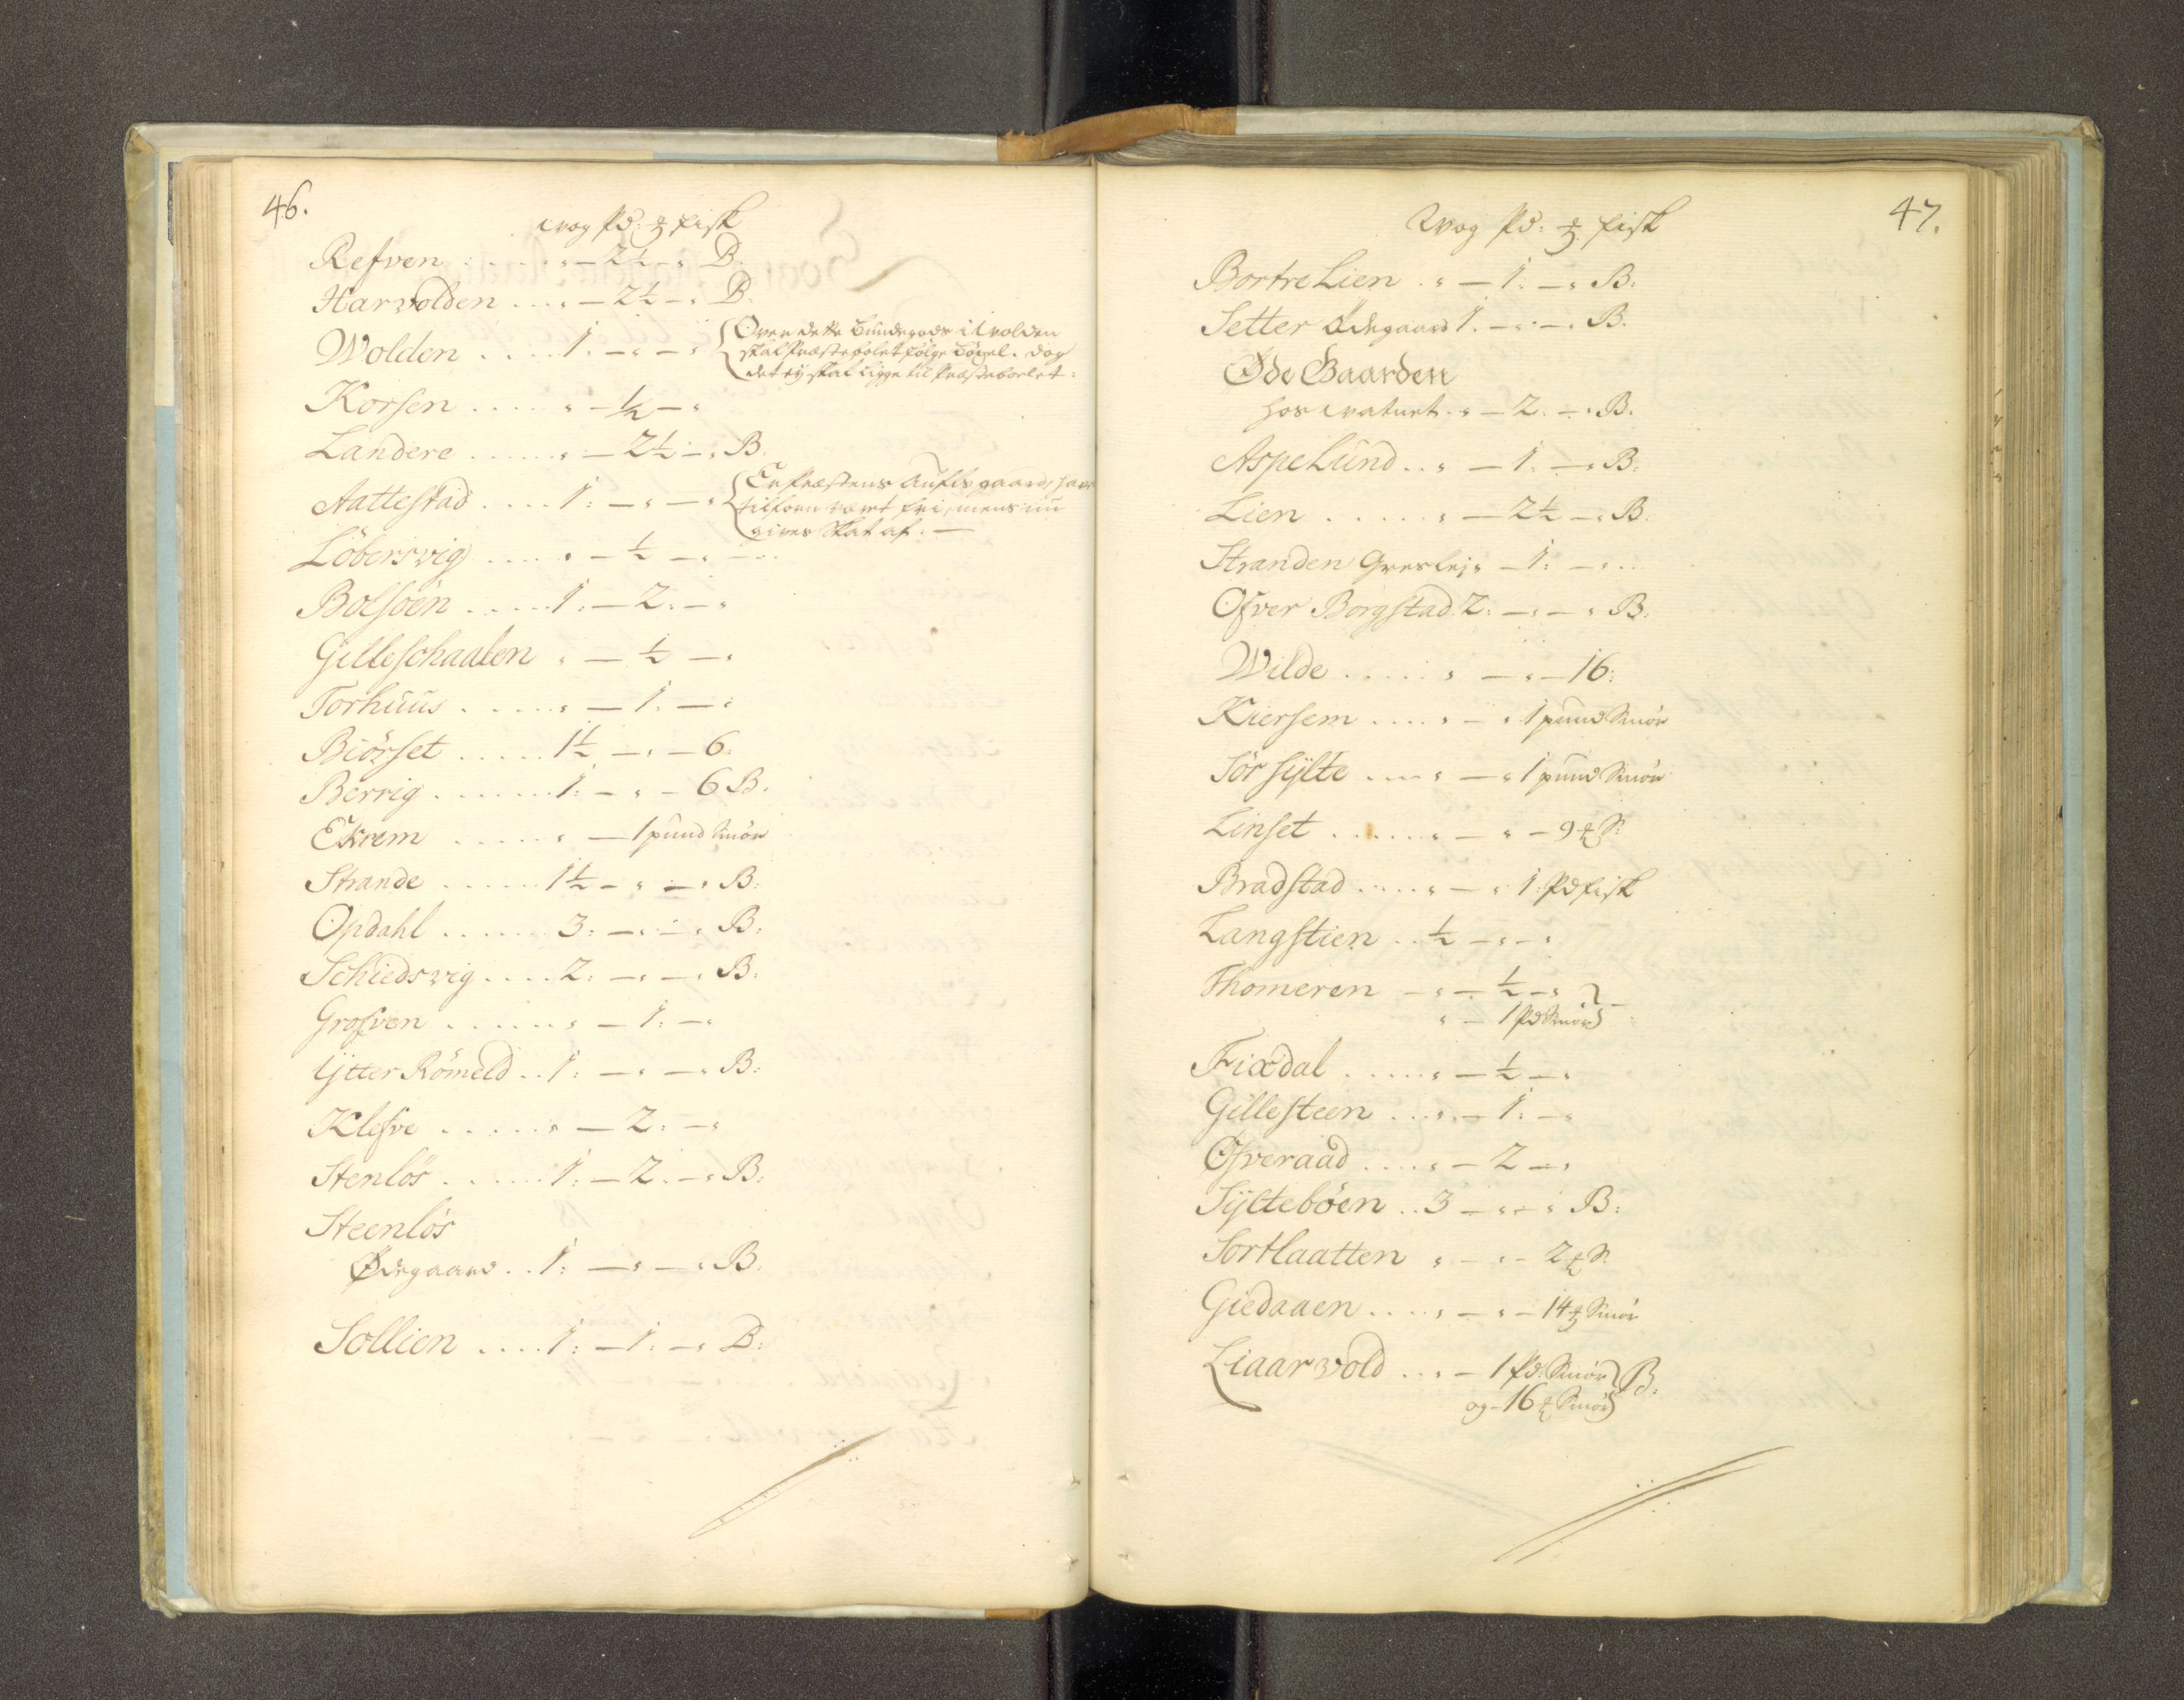 46.
wog Pd: ℔ fisk
Refven . . . . . " — 2½ — " B.
Harvolden . . . " — 2½ — " B.
Wolden . . . . 1. — " — " Over dette Bundegods i Wolden
skal Præstebolet følge Bøxel. dog
det ey skal ligge til Præstebolet:
Korsen . . . . . " — ½ — "
Landere . . . . . . " — 2½ — " B.
Aattestad . . . . 1: — " — " Er Præstens Aufls gaard, har
tilforn været fri, mens nu
gives Skat af. —
Löbersvig . . . . " — ½ — " — . .
Bolsöen . . . . . 1: — 2: — "
Gilleschaalen " — ½ — "
Torhuus . . . . . " — 1. — "
Biörset . . . . . 1½ — " — 6.
Berrig . . . . . . . 1. — " — 6 B.
Ekrem . . . . . " — 1 pund Smör
Strande . . . . . . 1½ — " — " B:
Opdahl . . . . . . 3: — " — " B:
Schiedsvig . . . . 2: — " — " B:
Grofven . . . . . . " — 1. — "
Ytter Römeld . . 1: — " — " B:
Klefve . . . . . . " — 2: — "
Stenlös . . . . . . 1. — 2. — " B:
Steenlös
Ødegaard . . 1: — " — " B.
Sollien . . . . 1: — 1. — " B:
47.
Wog Pd: ℔ fisk
Bortre Lien . " — 1. — " B:
Setter Ødegaard 1. — " — " B.
Øde Gaarden
hos Watnet. " — 2. — " B.
Aspelund . . " — 1. — " B:
Lien . . . . . . " — 2½ — " B.
Stranden Gresleje " — 1: — " . .
Ofver Borgstad 2: — " — " B:
Wilde . . . . . " — " — 16:
Kiersem . . . . " — " 1 pund Smör
Sör Sylte . . . . " — " 1 pund Smör
Linset . . . . . . " — " — 9 ℔ S:
Bradstad . . . . . " — " 1: Pd fisk
Langstien . . ½ — " — "
Thomeren — " — ½ — "
" — 1 Pd Smör
Fixdal . . . . . " — ½ — "
Gillesteen . . . " — 1. — "
Ofveraad . . . . " — 2 — "
Syltebøen . . 3 — " — " B:
Sortlaatten " — " — 2 ℔ S:
Giedaaen . . . . " — " — 14 ℔ Smör
Liaarvold . . " — 1 Pd: Smör B:
og — 16 ℔ Smör